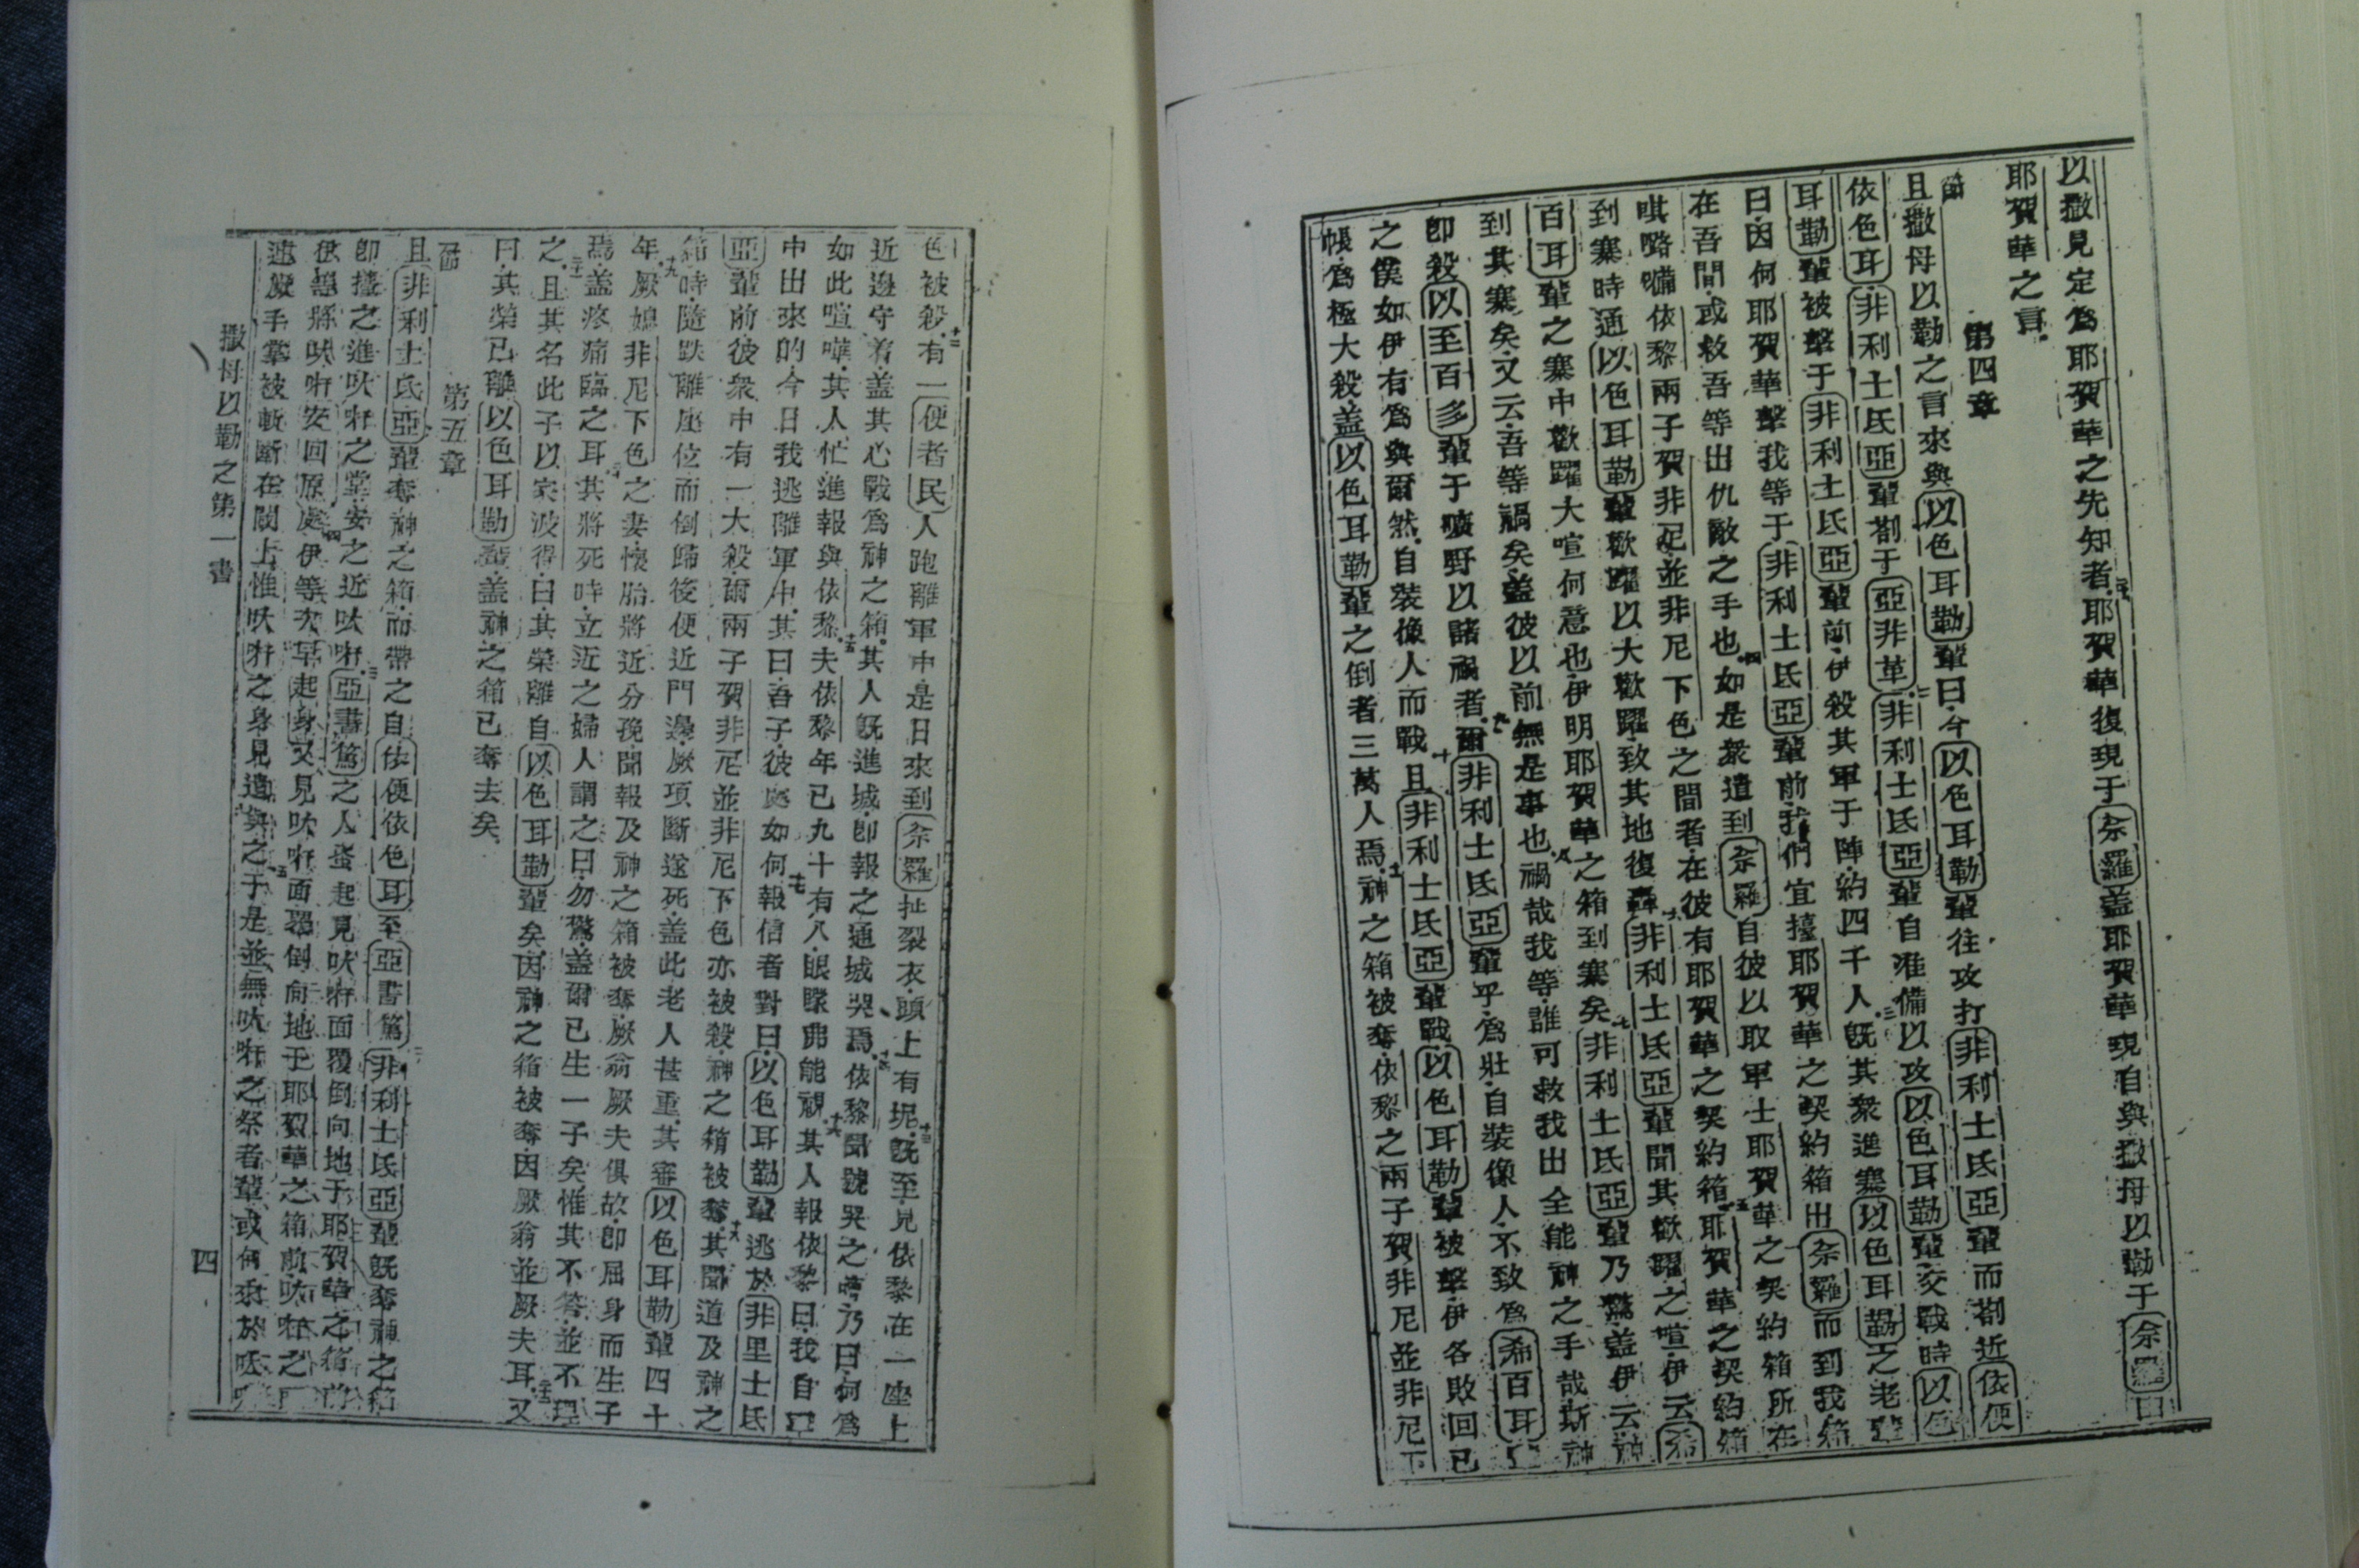 以撒見定爲耶賀華之先知者耶賀華復現于佘羅蓋耶賀華現自與撒母以勒于佘羅曰
耶賀華之言
第四章
節
且撒母以勒之言來與以色耳勒輩曰今以色耳勒輩往攻打非利士氏亞輩而劄近依便
依色耳非利士氏亞輩劄于亞非革二非利士氏亞輩自准備以攻以色耳勒輩交戰時以色
耳勒輩被擊于非利士氏亞輩前伊殺其軍于陣約四千人三既其衆進寨以色耳勒之老輩
曰因何耶賀華擊我等于非利士氏亞輩前我們宜擡耶賀華之契約箱出佘羅而到我箱
在吾間或救吾等出仇敵之手也四如是衆遣到佘羅自彼以取軍士耶賀華之契約箱所在
𠷠咯囉依黎兩子賀非尼並非尼下色之間者在彼有耶賀華之契約箱五耶賀華之契約箱
到寨時通以色耳勒輩歡躍以大歡躍致其地復轟六非利士氏亞輩聞其歡躍之喧伊云希
百耳輩之寨中歡躍大喧何意也伊明耶賀華之箱到寨矣七非利士氏亞輩乃驚蓋伊云神
到其寨矣又云吾等禍矣蓋彼以前無是事也八禍哉我等誰可救我出全能神之手哉斯神
卽殺以至百多輩于曠野以諸禍者九爾非利士氏亞輩乎爲壯自裝像人不致爲希百耳
之僕如伊有爲與爾然自裝像人而戰十且非利士氏亞輩戰以色耳勒輩被擊伊各敗回己
帳爲極大殺蓋以色耳勒輩之倒者三萬人焉十一神之箱被奪依黎之兩子賀非尼並非尼下
色被殺十二有一便者民人跑離軍中是日來到佘羅扯裂衣頭上有坭十三既至見依黎在一座上
近邊守着蓋其心戰爲神之箱其人既進城卽報之通城哭焉十四依黎聞號哭之聲乃曰何爲
如此喧嘩其人忙進報與依黎十五夫依黎年已九十有八眼矇弗能視十六其人報依黎曰我自軍
中出來的今日我逃離軍中其曰吾子彼處如何十七報信者對曰以色耳勒輩逃於非里士氏
亞輩前彼衆中有一大殺爾兩子賀非尼並非尼下色亦被殺神之箱被奪十八其聞道及神之
箱時隨跌離座位而倒歸後便近門邊厥項斷遂死蓋此老人甚重其審以色耳勒輩四十
年十九厥媳非尼下色之妻懷胎將近分娩聞報及神之箱被奪厥翁厥夫俱故卽屈身而生子
焉蓋疼痛臨之耳二十其將死時立近之婦人謂之曰勿驚蓋爾已生一子矣惟其不答並不理
之二十一且其名此子以家波得曰其榮離自以色耳勒輩矣因神之箱被奪因厥翁並厥夫耳二十二又
曰其榮已離以色耳勒輩蓋神之箱已奪去矣
第五章
節
且非利士氏亞輩奪神之箱而帶之自依便依色耳至亞書篤二非利士氏亞輩既奪神之箱
卽擡之進吠𤘘之堂安之近吠𤘘三亞書篤之人蚤起見吠𤘘面覆倒向地于耶賀華之箱前
伊等將吠𤘘安回原處四伊等次早起身又見吠𤘘面覆倒向地于耶賀華之箱前吠𤘘之
連厥手掌被斬斷在閾上惟吠𤘘之身見遺與之五于是並無吠𤘘之祭者輩或何來於吠
撒母以勒之第一書
四